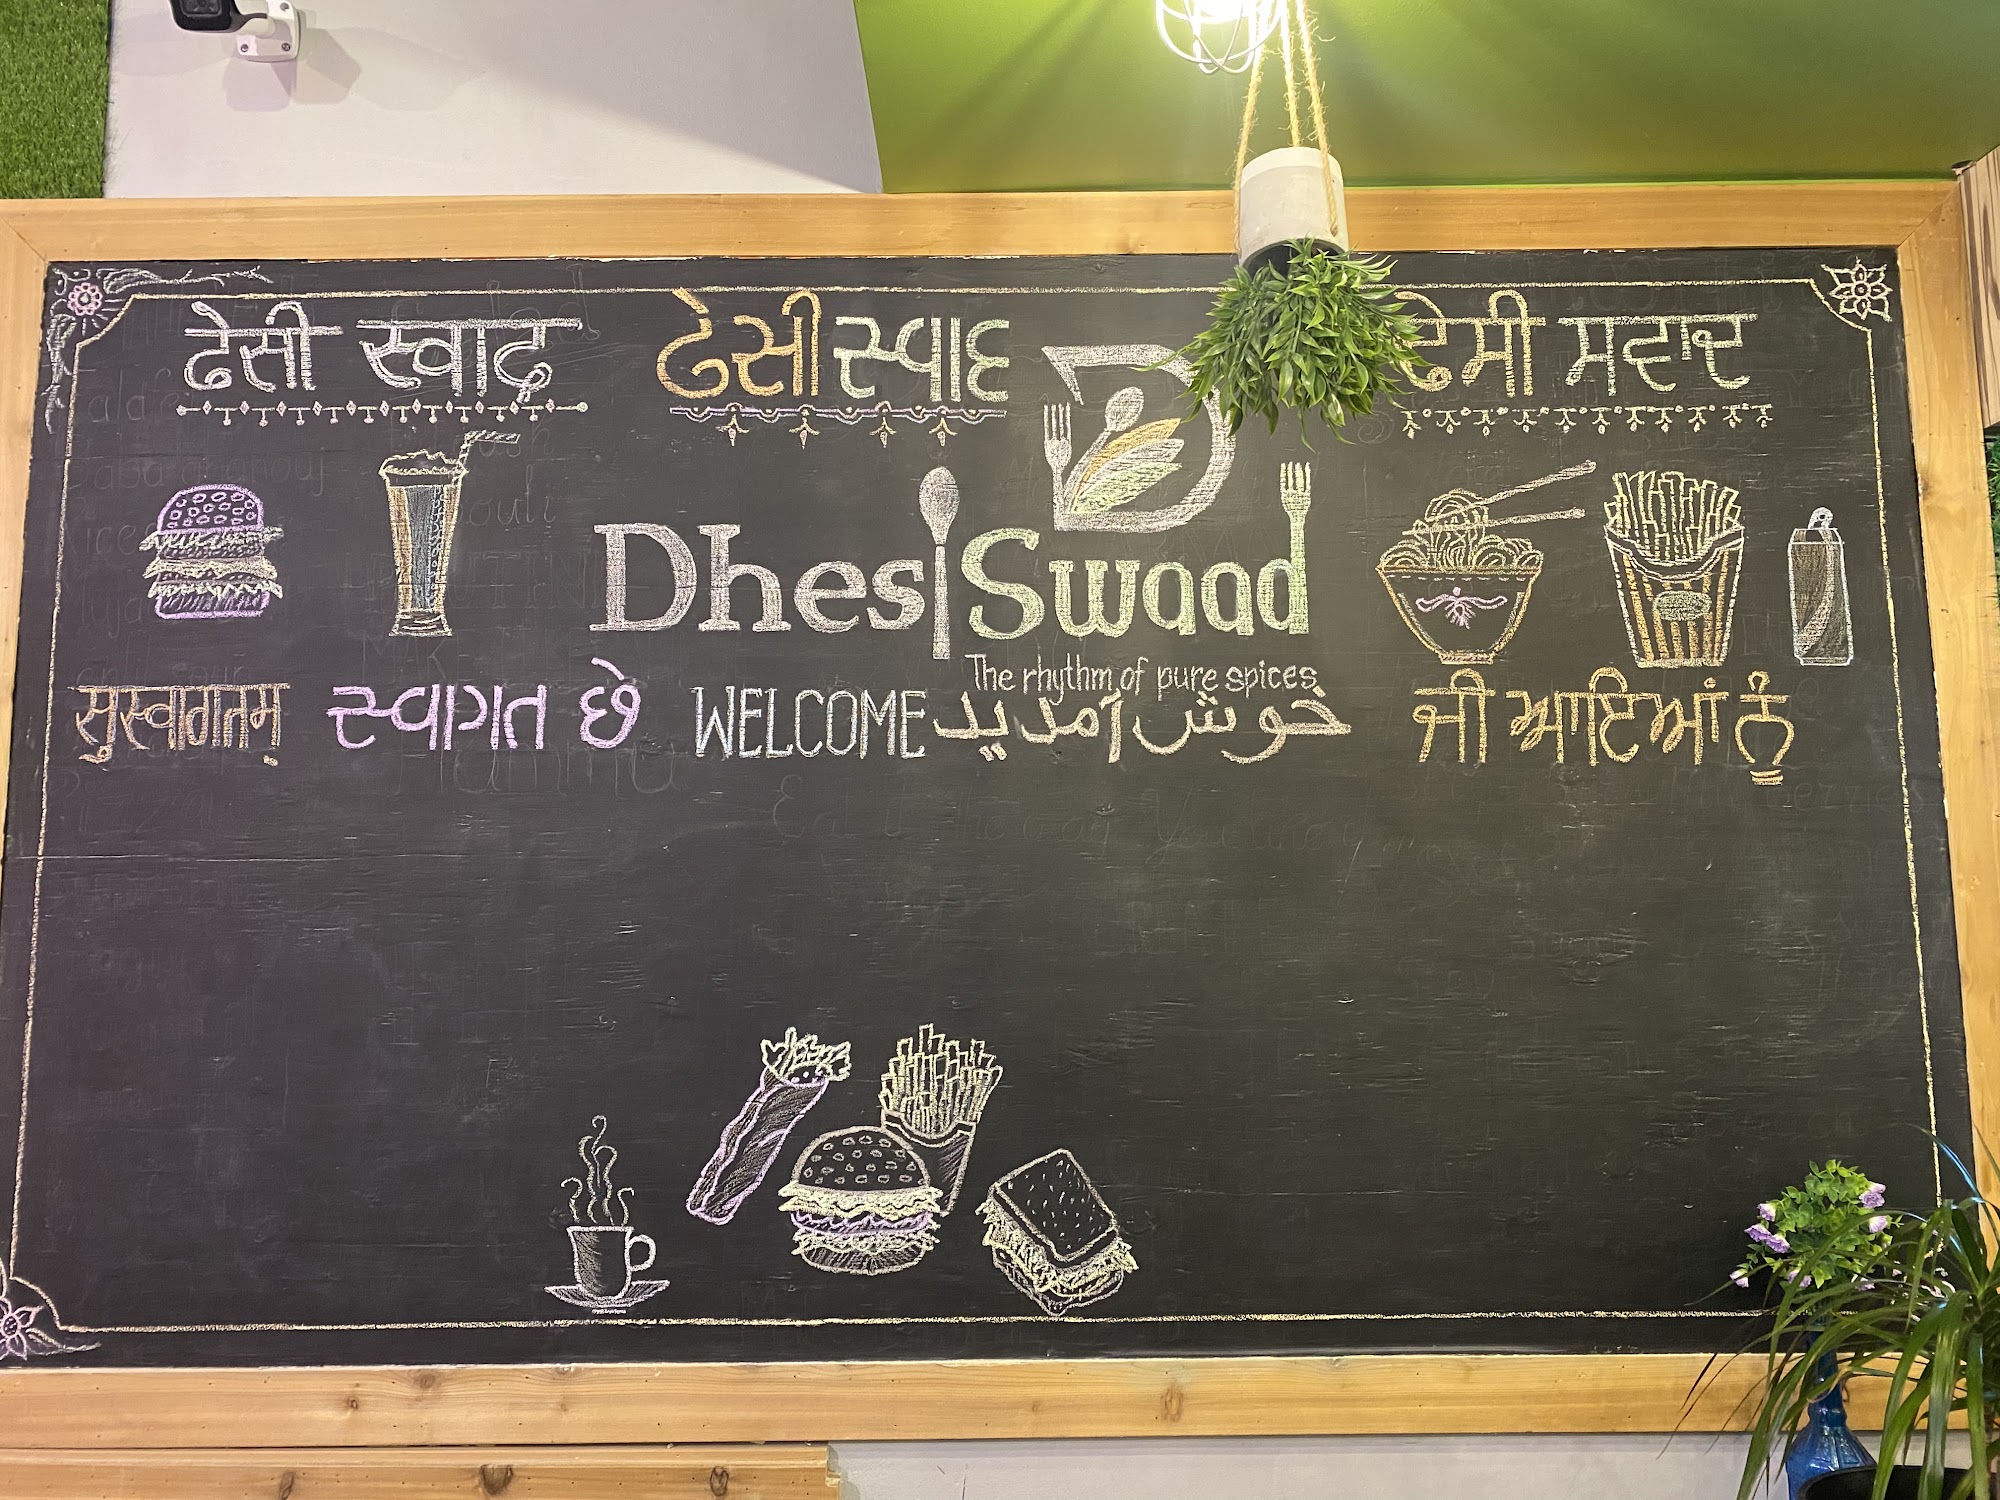 ढेसी स्वाद
ઢેસી સ્વાદ
ਢੇਸੀ ਸਵਾਦ
Dhesi Swaad
The rhythm of pure spices
सुस्वागतम्
સ્વાગત છે
WELCOME
خوش آمدید
ਜੀ ਆਇਆਂ ਨੂੰ